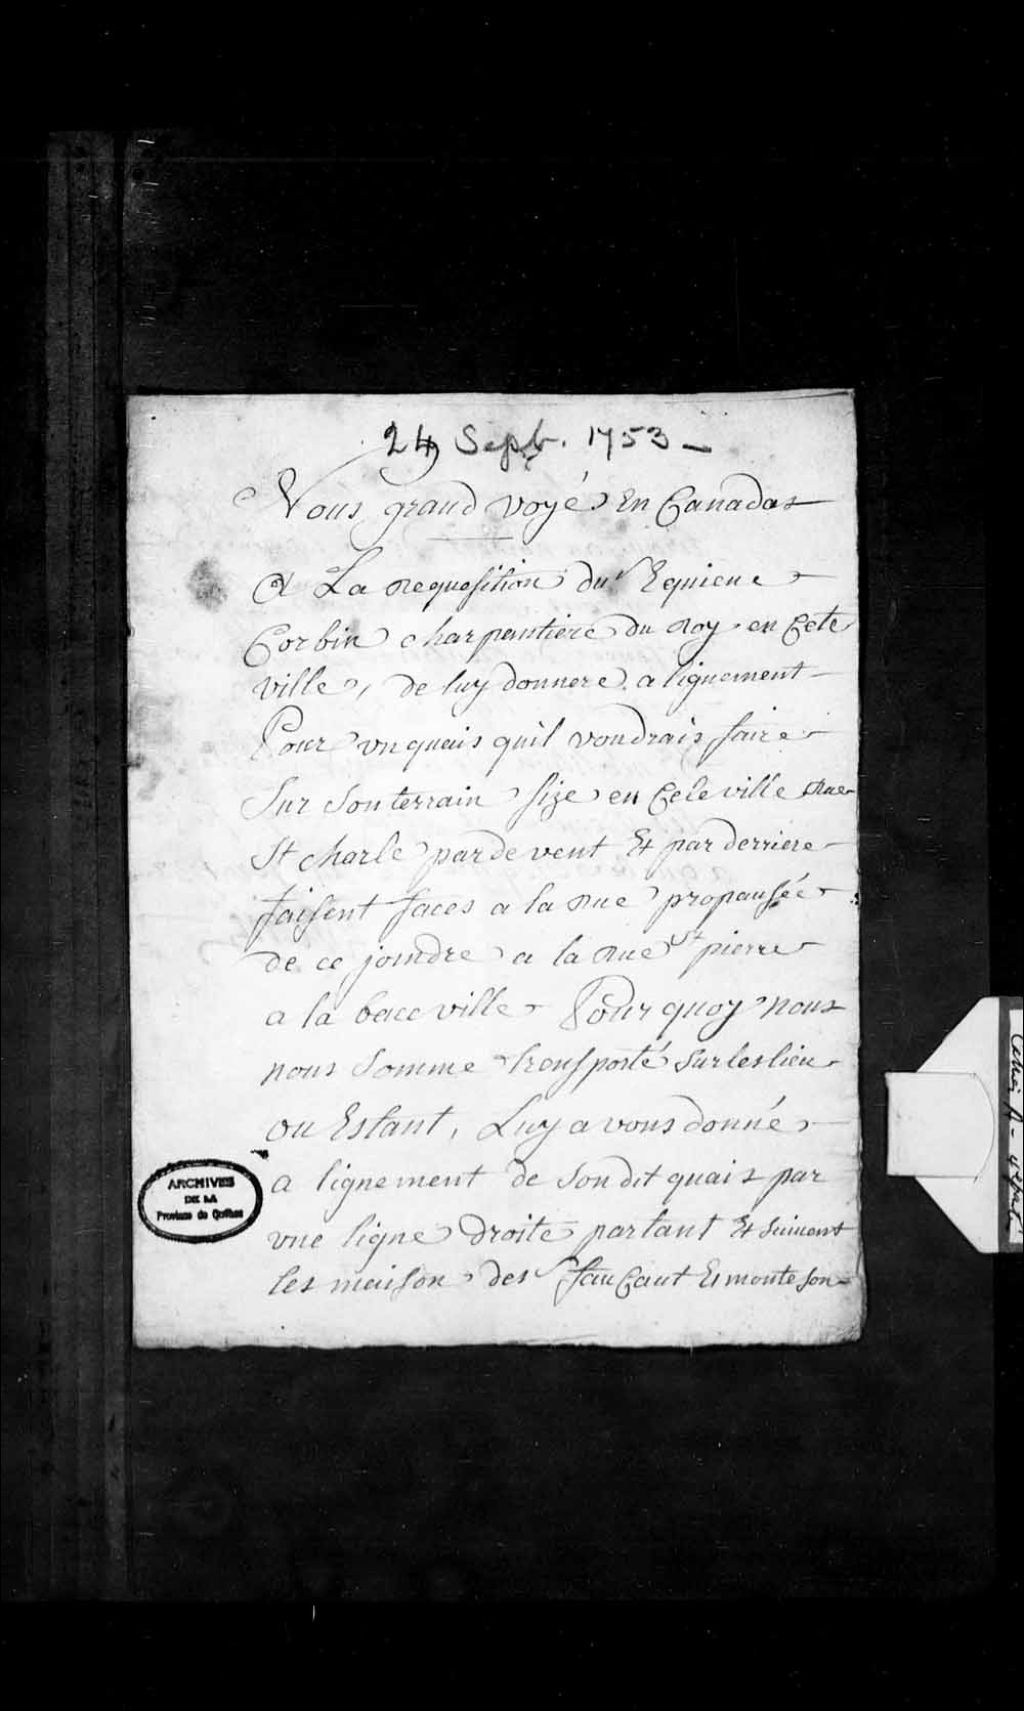 24 Sept. 1753 —
Nous grand voyé En Canadas
A La requesition du Sr Equiene
Corbin charpantiere du Roy en Cete
ville, de luy donnere alignement
Pour vn quais quil voudrais faire
Sur Son terrain size en Cete ville Rue
St charle par devent Et par derriere
faisent faces a la Rue propausée
de ce joindre a la Rue St pierre
a la bace ville Pour quoy nous
nous Somme trensporté Sur les lieu
ou Estant, Luy avons donné
alignement de Son dit quais par
vne ligne droite partant Et Suivant
les maison des Srs faucaut Esmonte son
ARCHIVES
DE LA
Province de Québec